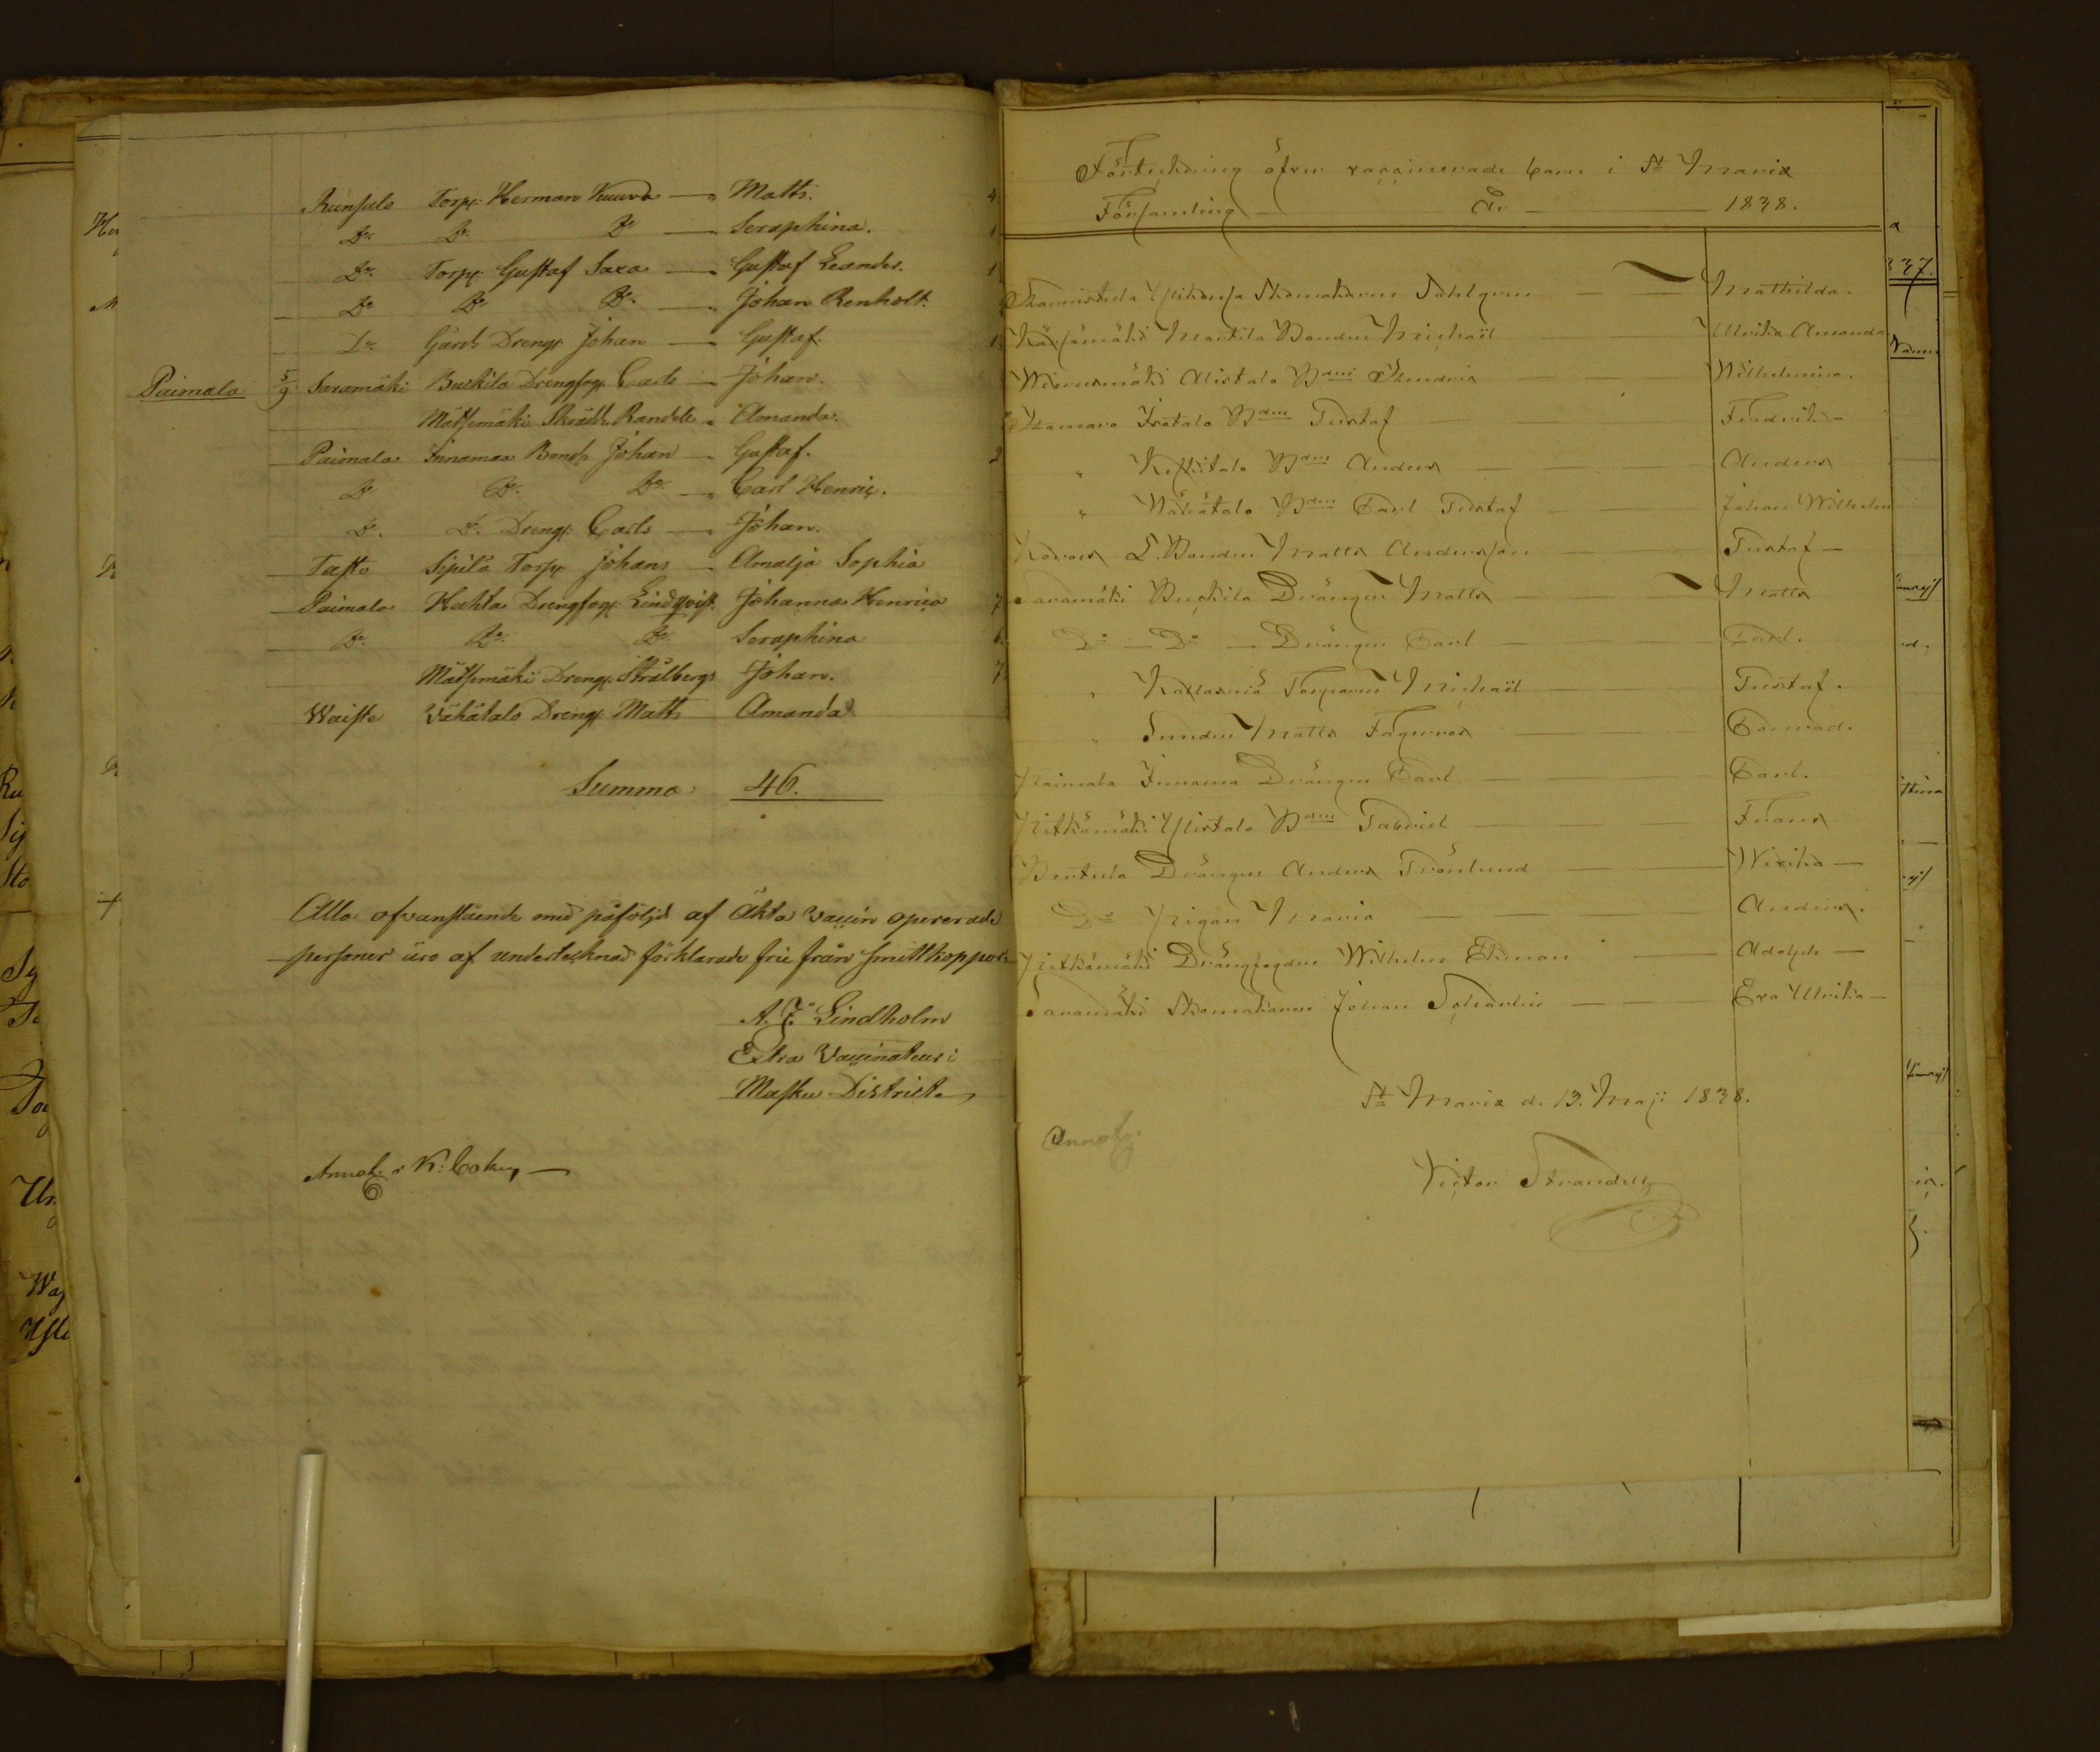 Runsalo Torp: Herman Kuuva — Matts. 4
Do. Do. Do — Seraphina. 1
Do. Torp: Gustaf Saxa — Gustaf Leander. 1
Do Do Do. — Johan Renholt.
Do. Gårds Dreng: Johan — Gustaf. 1
Paimala 5/9 Saramäki Buckila Drengfog: Carls — Johan.
Mätsemäki Skrädd. Randell — Amanda.
Paimala Innamaa Bond: Johan — Gustaf. 2
Do Do. Do. — Carl Henric.
Do. Do. Dreng: Carls — Johan.
Tasto Sipilä Torp: Johans — Amalja Sophia
Paimala Huhta Drengfog: Lindqvist. Johanna Henrica 7
Do. Do. Do. Seraphina 6
Mätsemäki Dreng: Strålbergs Johan. 7
Waiste Vähätalo Dreng: Matts Amanda
Summa 46.
Alla ofvanstående med påföljd af Äkta Vaccin opererade
personer äro af undertecknad förklarade frie från smittkoppor.
A. F. Lindholm
Extra Vaccinateur i
Masku District
Annot. i K: boken —
Förteckning öfver vaccinerade barn i St Mariæ
Församling — År — 1838.
Skomakaren Dahlgren — Mathilda.
Räntämäki Martila Bonden Michaël — Ulrika Amanda
Alistalo — Wilhelmina.
Isotalo Bden Gustaf — Fredrik —
" Keskitalo Bden Anders — Anders
" Vähätalo Bden Carl Gustaf — Johan Wilhelm
Bonden Matts Andersson — Gustaf —
Saramäki Buckila Drängen Matts — Matts
Do — Do — Drängen Carl — Carl.
" Torparen Michaël — Gustaf.
" Matts Fagerros — Conrad.
Paimala Innama Drängen Carl — Carl.
Pitkämäki Ylistalo Bden Gabriel — Frans
Drängen Anders Grönlund — Wixika —
Do Pigan Maria — Anders.
Pitkämäki Drängfogden Wilhelm Ekman — Adolph —
Saramäki Skomakaren Johan — Eva Ulrika —
St Mariæ d. 13. Maji 1838.
Annot.
Victor Strandell